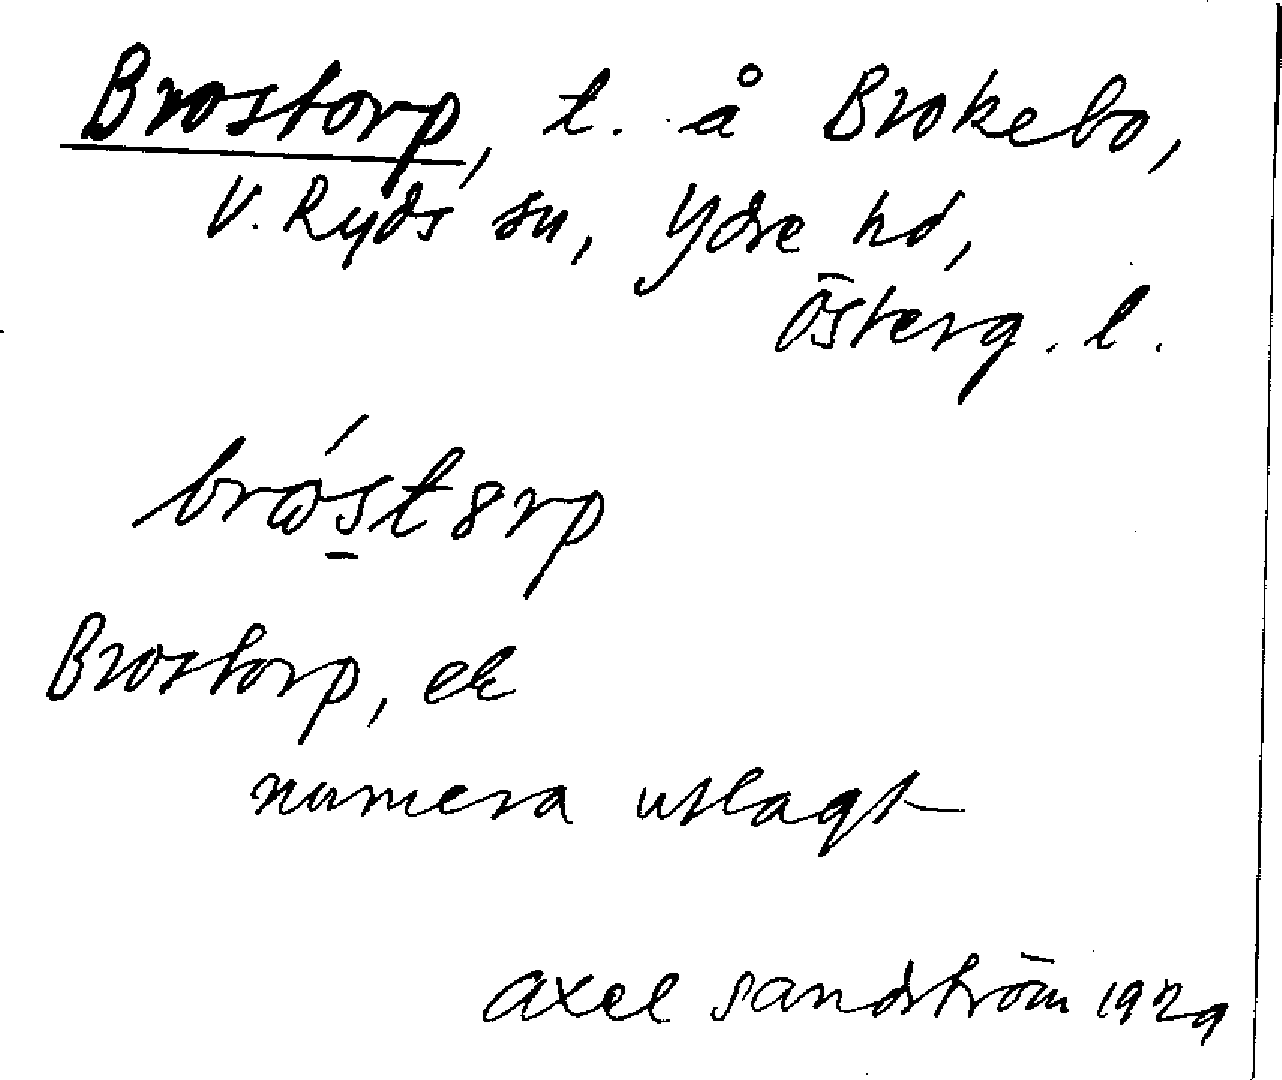 Brostorp, t. å Brokebo,
V. Ryds sn, Ydre hd,
Österg. l.
Brostorp, ek
numera utlagt
Axel Sandström 1929